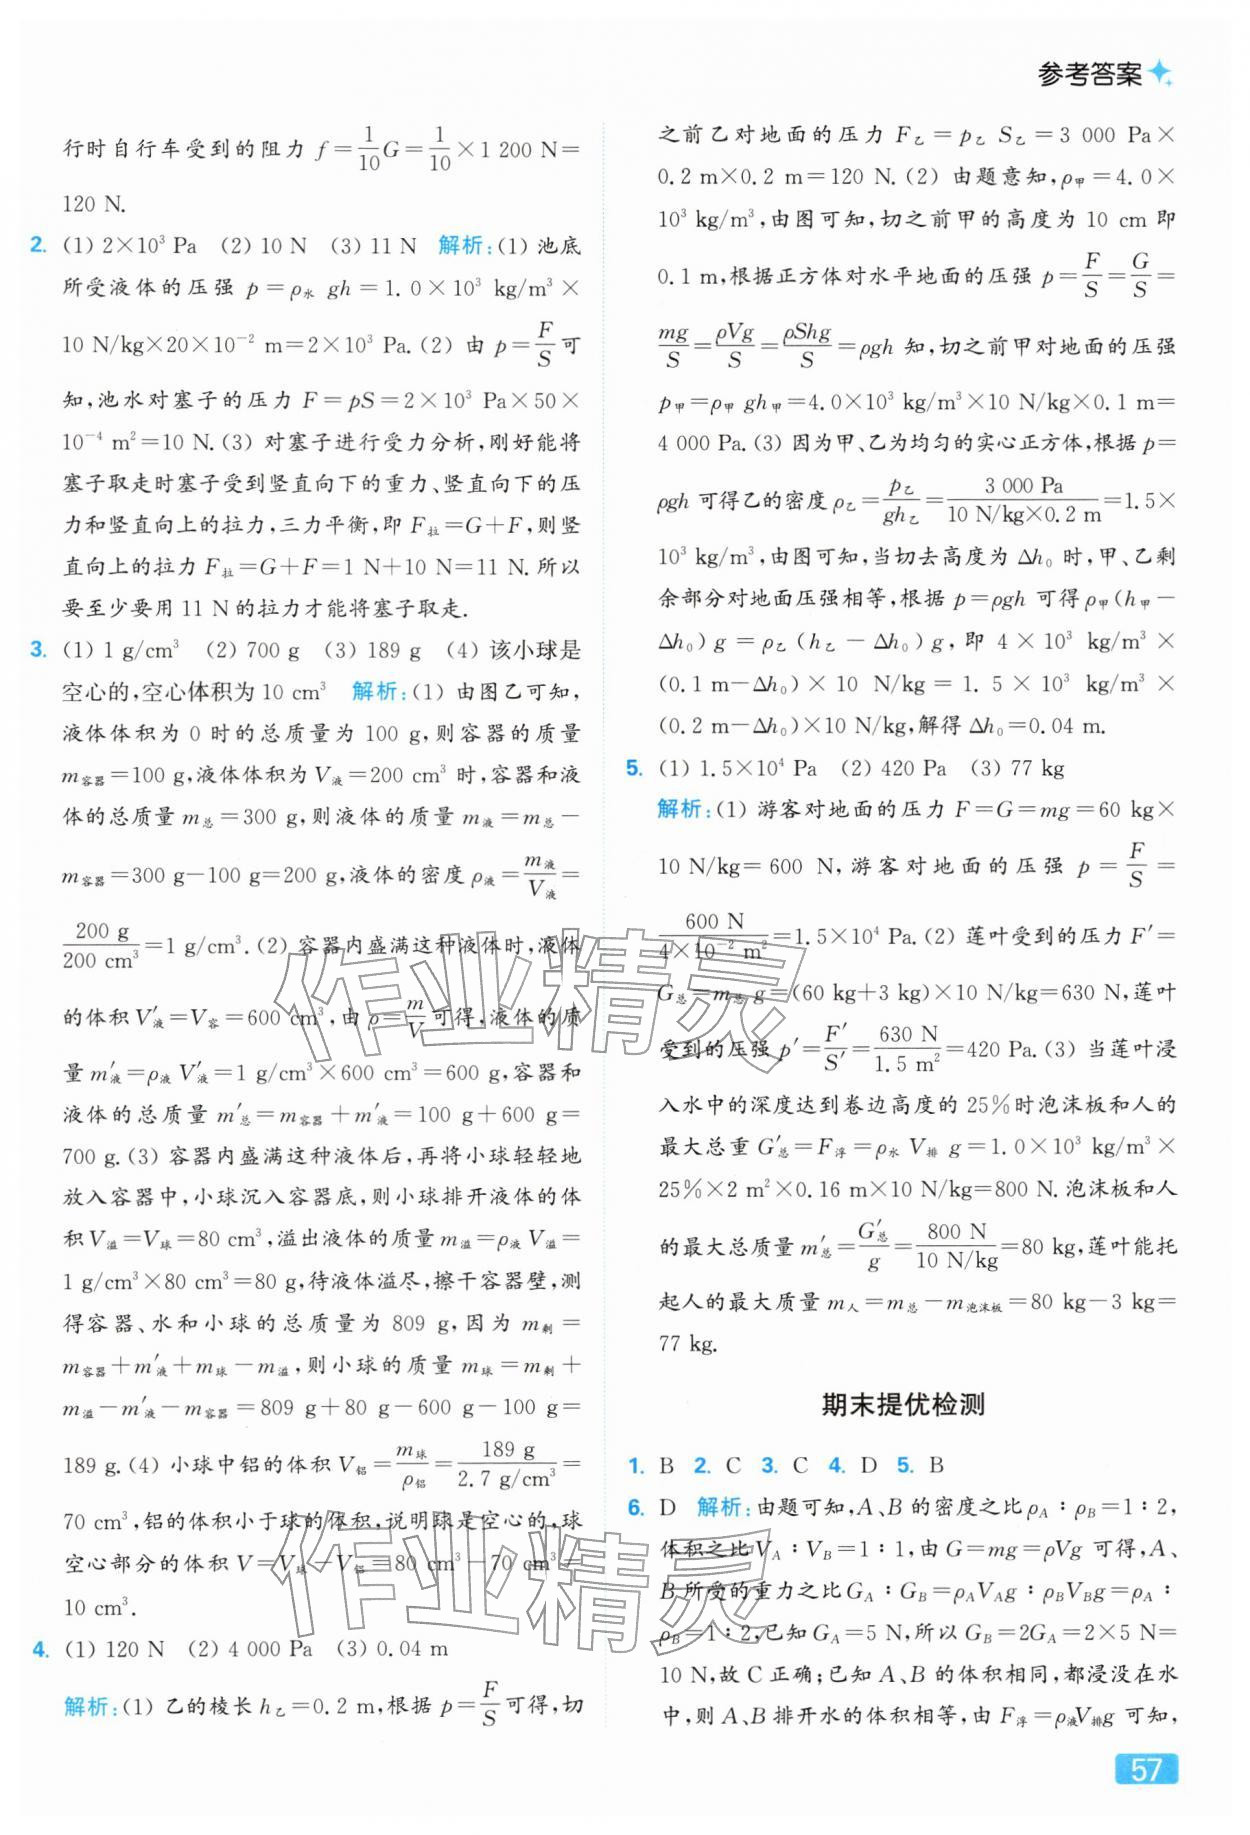 参考答案
行时自行车受到的阻力 f=1/10G=1/10×1 200 N=
120 N.
2. (1) 2×10³ Pa (2) 10 N (3) 11 N 解析:(1) 池底
所受液体的压强 p=ρ水 gh=1.0×10³ kg/m³×
10 N/kg×20×10⁻² m=2×10³ Pa.(2) 由 p=F/S可
知,池水对塞子的压力 F=pS=2×10³ Pa×50×
10⁻⁴ m²=10 N.(3) 对塞子进行受力分析,刚好能将
塞子取走时塞子受到竖直向下的重力、竖直向下的压
力和竖直向上的拉力,三力平衡,即 F拉=G+F,则竖
直向上的拉力 F拉=G+F=1 N+10 N=11 N.所以
要至少要用 11 N 的拉力才能将塞子取走.
3. (1) 1 g/cm³ (2) 700 g (3) 189 g (4) 该小球是
空心的,空心体积为 10 cm³ 解析:(1) 由图乙可知,
液体体积为 0 时的总质量为 100 g,则容器的质量
m容器=100 g,液体体积为 V液=200 cm³ 时,容器和液
体的总质量 m总=300 g,则液体的质量 m液=m总-
m容器=300 g-100 g=200 g,液体的密度 ρ液=m液/V液=
200 g/200 cm³=1 g/cm³.(2) 容器内盛满这种液体时,液体
的体积 V′液=V容=600 cm³,由 ρ=m/V可得,液体的质
量 m′液=ρ液 V′液=1 g/cm³×600 cm³=600 g,容器和
液体的总质量 m′总=m容器+m′液=100 g+600 g=
700 g.(3) 容器内盛满这种液体后,再将小球轻轻地
放入容器中,小球沉入容器底,则小球排开液体的体
积 V溢=V球=80 cm³,溢出液体的质量 m溢=ρ液 V溢=
1 g/cm³×80 cm³=80 g,待液体溢尽,擦干容器壁,测
得容器、水和小球的总质量为 809 g,因为 m剩=
m容器+m′液+m球-m溢,则小球的质量 m球=m剩+
m溢-m′液-m容器=809 g+80 g-600 g-100 g=
189 g.(4) 小球中铝的体积 V铝=m球/ρ铝=189 g/2.7 g/cm³=
70 cm³,铝的体积小于球的体积,说明球是空心的,球
空心部分的体积 V=V球-V铝=80 cm³-70 cm³=
10 cm³.
4. (1) 120 N (2) 4 000 Pa (3) 0.04 m
解析:(1) 乙的棱长 h乙=0.2 m,根据 p=F/S可得,切
之前乙对地面的压力 F乙=p乙 S乙=3 000 Pa×
0.2 m×0.2 m=120 N.(2) 由题意知,ρ甲=4.0×
10³ kg/m³,由图可知,切之前甲的高度为 10 cm 即
0.1 m,根据正方体对水平地面的压强 p=F/S=G/S=
mg/S=ρVg/S=ρShg/S=ρgh 知,切之前甲对地面的压强
p甲=ρ甲 gh甲=4.0×10³ kg/m³×10 N/kg×0.1 m=
4 000 Pa.(3) 因为甲、乙为均匀的实心正方体,根据 p=
ρgh 可得乙的密度 ρ乙=p乙/gh乙=3 000 Pa/10 N/kg×0.2 m=1.5×
10³ kg/m³,由图可知,当切去高度为 Δh₀ 时,甲、乙剩
余部分对地面压强相等,根据 p=ρgh 可得 ρ甲(h甲-
Δh₀)g=ρ乙(h乙-Δh₀)g,即 4×10³ kg/m³×
(0.1 m-Δh₀)×10 N/kg=1.5×10³ kg/m³×
(0.2 m-Δh₀)×10 N/kg,解得 Δh₀=0.04 m.
5. (1) 1.5×10⁴ Pa (2) 420 Pa (3) 77 kg
解析:(1) 游客对地面的压力 F=G=mg=60 kg×
10 N/kg=600 N,游客对地面的压强 p=F/S=
600 N/4×10⁻² m²=1.5×10⁴ Pa.(2) 莲叶受到的压力 F′=
G总=m总 g=(60 kg+3 kg)×10 N/kg=630 N,莲叶
受到的压强 p′=F′/S′=630 N/1.5 m²=420 Pa.(3) 当莲叶浸
入水中的深度达到卷边高度的 25%时泡沫板和人的
最大总重 G′总=F浮=ρ水 V排 g=1.0×10³ kg/m³×
25%×2 m²×0.16 m×10 N/kg=800 N.泡沫板和人
的最大总质量 m′总=G′总/g=800 N/10 N/kg=80 kg,莲叶能托
起人的最大质量 m人=m总-m泡沫板=80 kg-3 kg=
77 kg.
期末提优检测
1. B 2. C 3. C 4. D 5. B
6. D 解析:由题可知,A、B 的密度之比 ρA∶ρB=1∶2,
体积之比 VA∶VB=1∶1,由 G=mg=ρVg 可得,A、
B 所受的重力之比 GA∶GB=ρAVAg∶ρBVBg=ρA∶
ρB=1∶2,已知 GA=5 N,所以 GB=2GA=2×5 N=
10 N,故 C 正确;已知 A、B 的体积相同,都浸没在水
中,则 A、B 排开水的体积相等,由 F浮=ρ液V排g 可知,
57
作业精灵
作业精灵